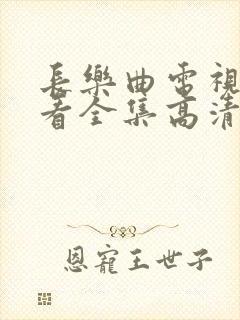 長樂曲電視
看全集高清
恩寵王世子